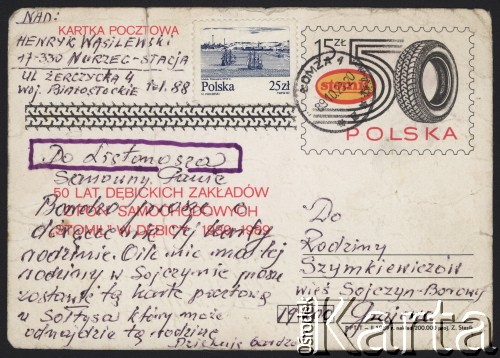 NAD:
KARTKA POCZTOWA
HENRYK WASILEWSKI
17-330 NURZEC-STACJA
UL ŻERCZYCKA 4
WOJ. Białostockie tel. 88
Polska 25zł
15 ZŁ
50
stomil
ŁOMŻA 1
POLSKA
Do Listonosza
Szanowny Panie
50 LAT DĘBICKICH ZAKŁADÓW
OPON SAMOCHODOWYCH
"STOMIL" W DĘBICY 1939-1989
Bardzo proszę o
doręczenie tej karty
rodzinie. O ile nie ma tej
rodziny w Sojczynie proszę
zostawić tą kartę pocztową
u Sołtysa który może
odnajdzie tą rodzinę
Dziękuję bardzo
Do
Rodziny
Szymkiewiczów
wieś Sojczyn-Borowy
Grajewo
ośrodek Karta